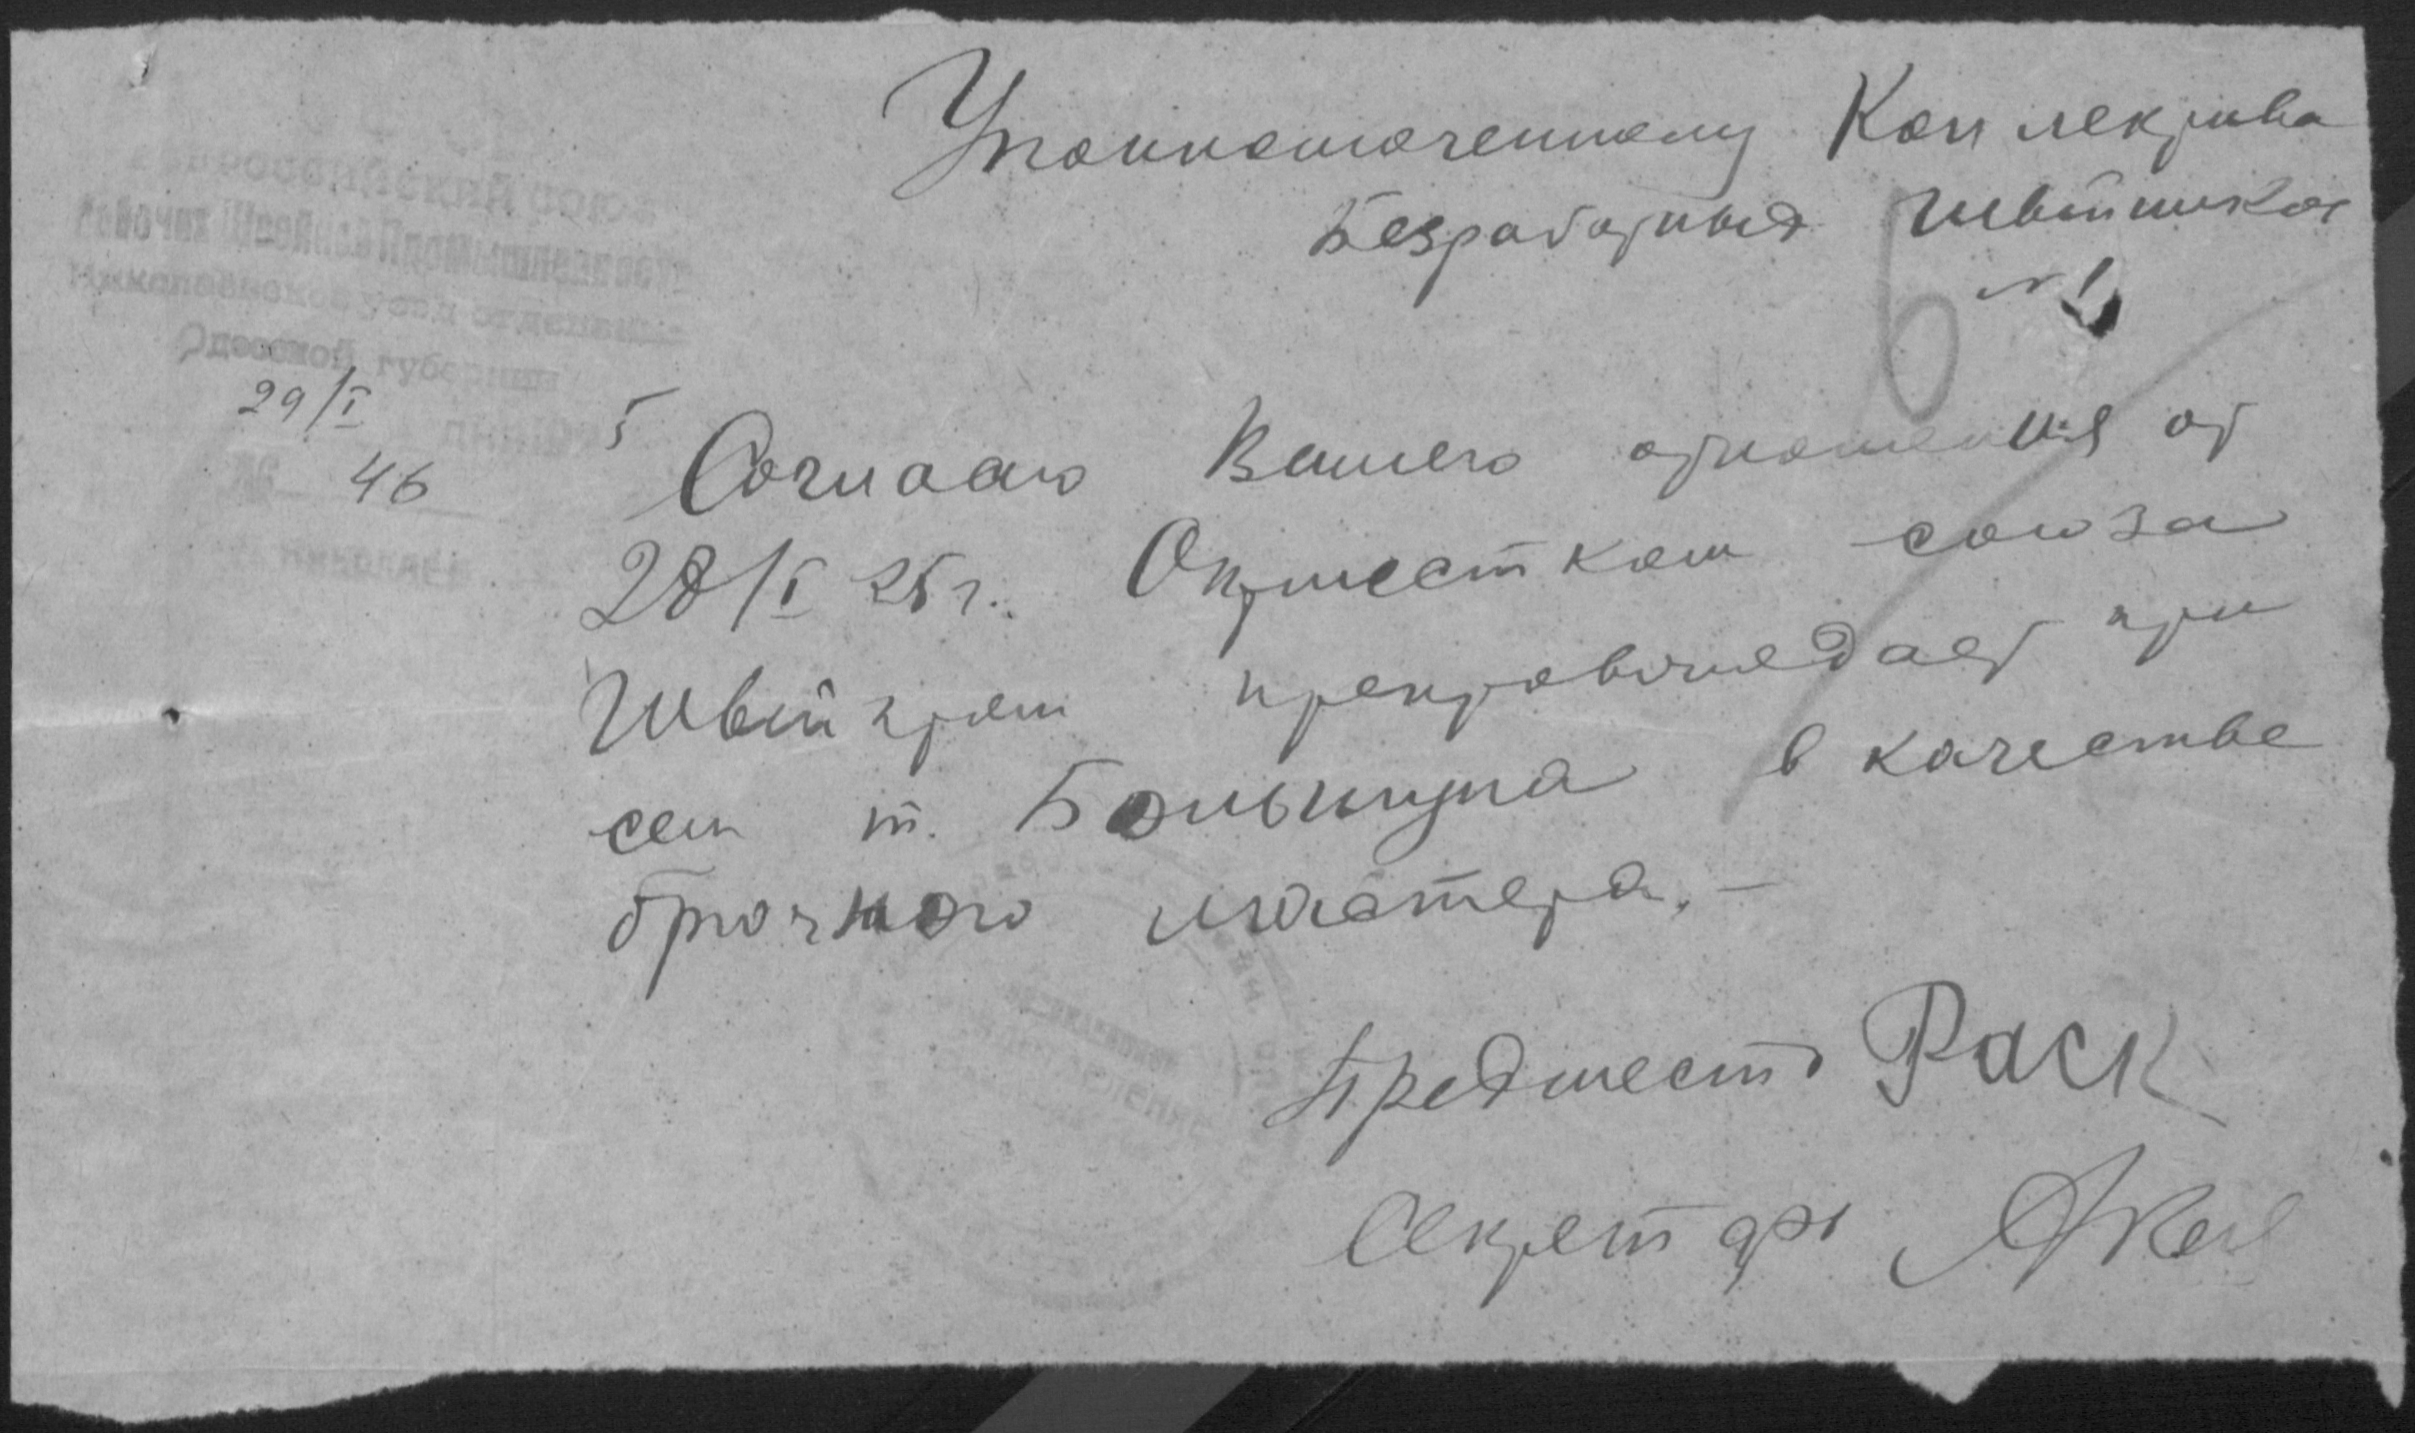 Уполномоченному Коллектива
Безработных Швейников
№ 1
Всероссийский союз
Рабочих Швейной Промышленности
Николаевское уезд отделение
Одесской губернии
29/I 5
№ 46
Николаев
Согласно Вашего отношения от
28/I 25 г. Окрместком союза
Швейпром препровождает при
сем т. в качестве
брючного мастера. —
Предместо Раск
Секретарь
6